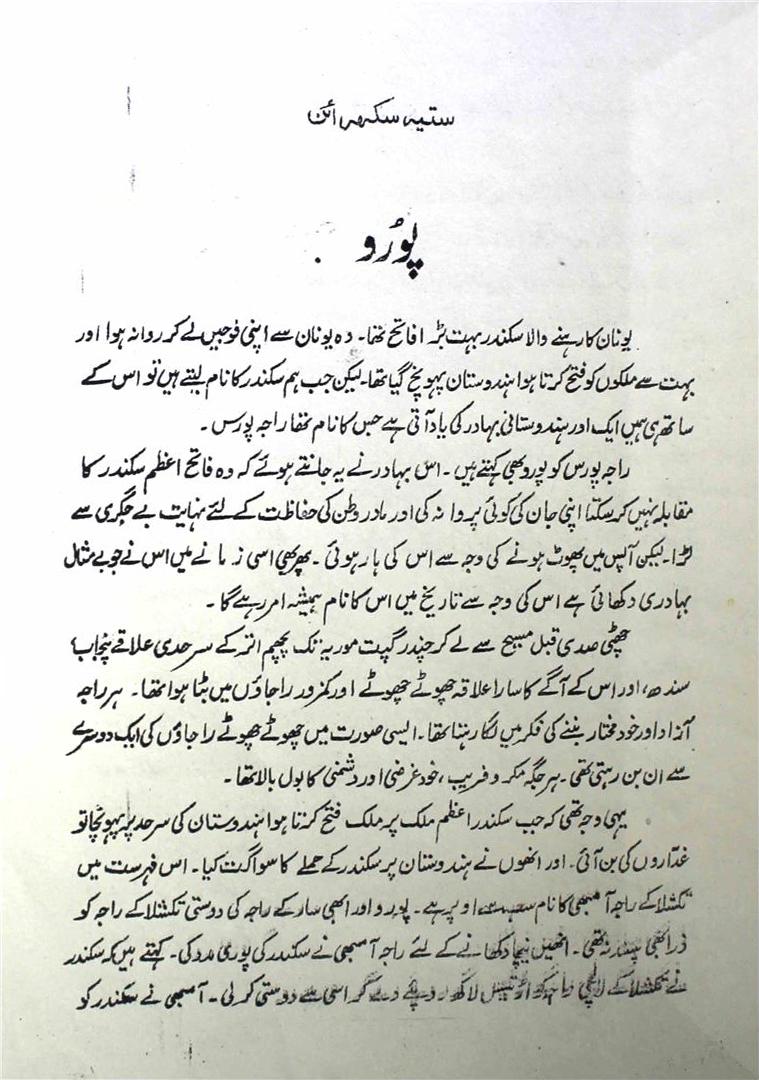 ستیہ سکھرائن
پوُرُو
یونان کا رہنے والا سکندر بہت بڑا فاتح تھا۔ وہ یونان سے اپنی فوجیں لے کر روانہ ہوا اور
بہت سے ملکوں کو فتح کرتا ہوا ہندوستان پہونچ گیا تھا۔ لیکن جب ہم سکندر کا نام لیتے ہیں تو اس کے
ساتھ ہی ہمیں ایک اور ہندوستانی بہادر کی یاد آتی ہے جس کا نام تھا راجہ پورس۔
راجہ پورس کو پورو بھی کہتے ہیں۔ اس بہادر نے یہ جانتے ہوئے کہ وہ فاتح اعظم سکندر کا
مقابلہ نہیں کر سکتا اپنی جان کی کوئی پروا نہ کی اور مادر وطن کی حفاظت کے لئے نہایت بے جگری سے
لڑا۔ لیکن آپس میں پھوٹ ہونے کی وجہ سے اس کی ہار ہوئی۔ پھر بھی اسی زمانے میں اس نے جو بے مثال
بہادری دکھائی ہے اس کی وجہ سے تاریخ میں اس کا نام ہمیشہ امر رہے گا۔
چھٹی صدی قبل مسیح سے لے کر چندر گپت موریہ تک پچھم اتر کے سرحدی علاقے پنجاب،
سندھ، اور اس کے آگے کا سارا علاقہ چھوٹے چھوٹے اور کمزور راجاؤں میں بٹا ہوا تھا۔ ہر راجہ
آزاد اور خود مختار بننے کی فکر میں لگا رہتا تھا۔ ایسی صورت میں چھوٹے چھوٹے راجاؤں کی ایک دوسرے
سے ان بن رہتی تھی۔ ہر جگہ مکر و فریب، خود غرضی اور دشمنی کا بول بالا تھا۔
یہی وجہ تھی کہ جب سکندر اعظم ملک پر ملک فتح کرتا ہوا ہندوستان کی سرحد پر پہونچا تو
غداروں کی بن آئی۔ اور انھوں نے ہندوستان پر سکندر کے حملے کا سواگت کیا۔ اس فہرست میں
تکشلا کے راجہ آمبھی کا نام سب سے اوپر ہے۔ پورو اور ابھی سار کے راجہ کی دوستی تکشلا کے راجہ کو
ذرا بھی پسند نہ تھی۔ انھیں نیچا دکھانے کے لئے راجہ آمبھی نے سکندر کی پوری مدد کی۔ کہتے ہیں کہ سکندر
نے تکشلا کے لالچی راجہ کو لاکھ روپئے دے کر اسی سے دوستی کر لی۔ آمبھی نے سکندر کو